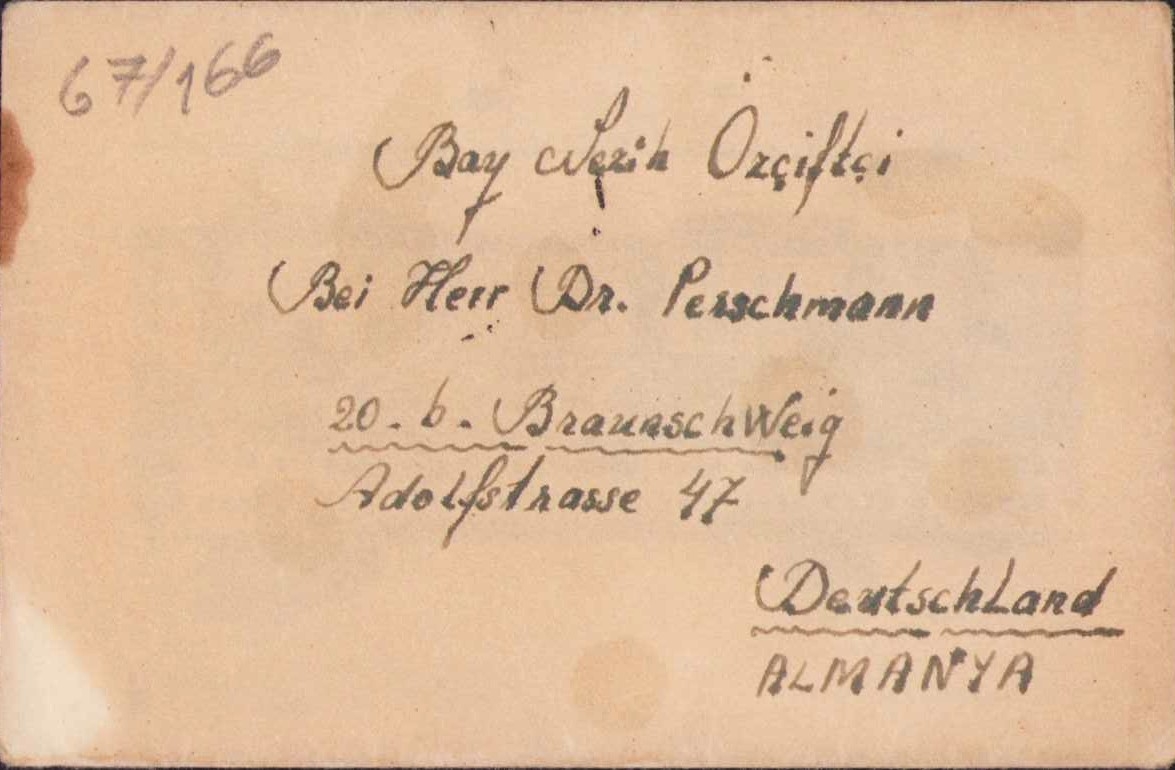 67/166
Bay Nezih Özçiftçi
Bei Herr Dr. Perschmann
20.b. Braunschweig
Adolfstrasse 47
Deutschland
ALMANYA